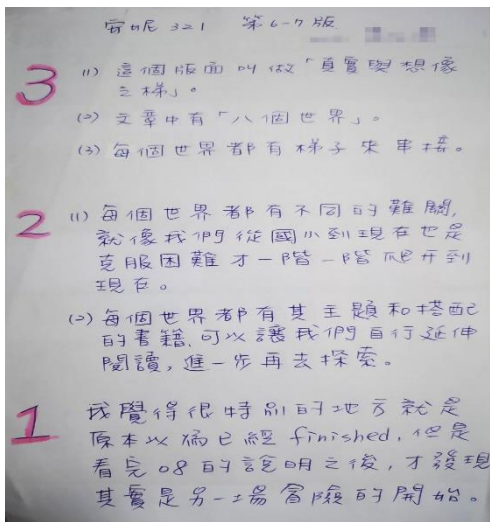 安妮321 第6-7版
3 (1) 這個版面叫做「真實與想像
之梯」。
(2) 文章中有「八個世界」。
(3) 每個世界都有梯子來串接。
2 (1) 每個世界都有不同的難關,
就像我們從國小到現在也是
克服困難才一階一階爬升到
現在。
(2) 每個世界都有其主題和搭配
的書籍,可以讓我們自行延伸
閱讀,進一步再去探索。
1 我覺得很特別的地方就是
原本以為已經finished,但是
看完08的說明之後,才發現
其實是另一場冒險的開始。